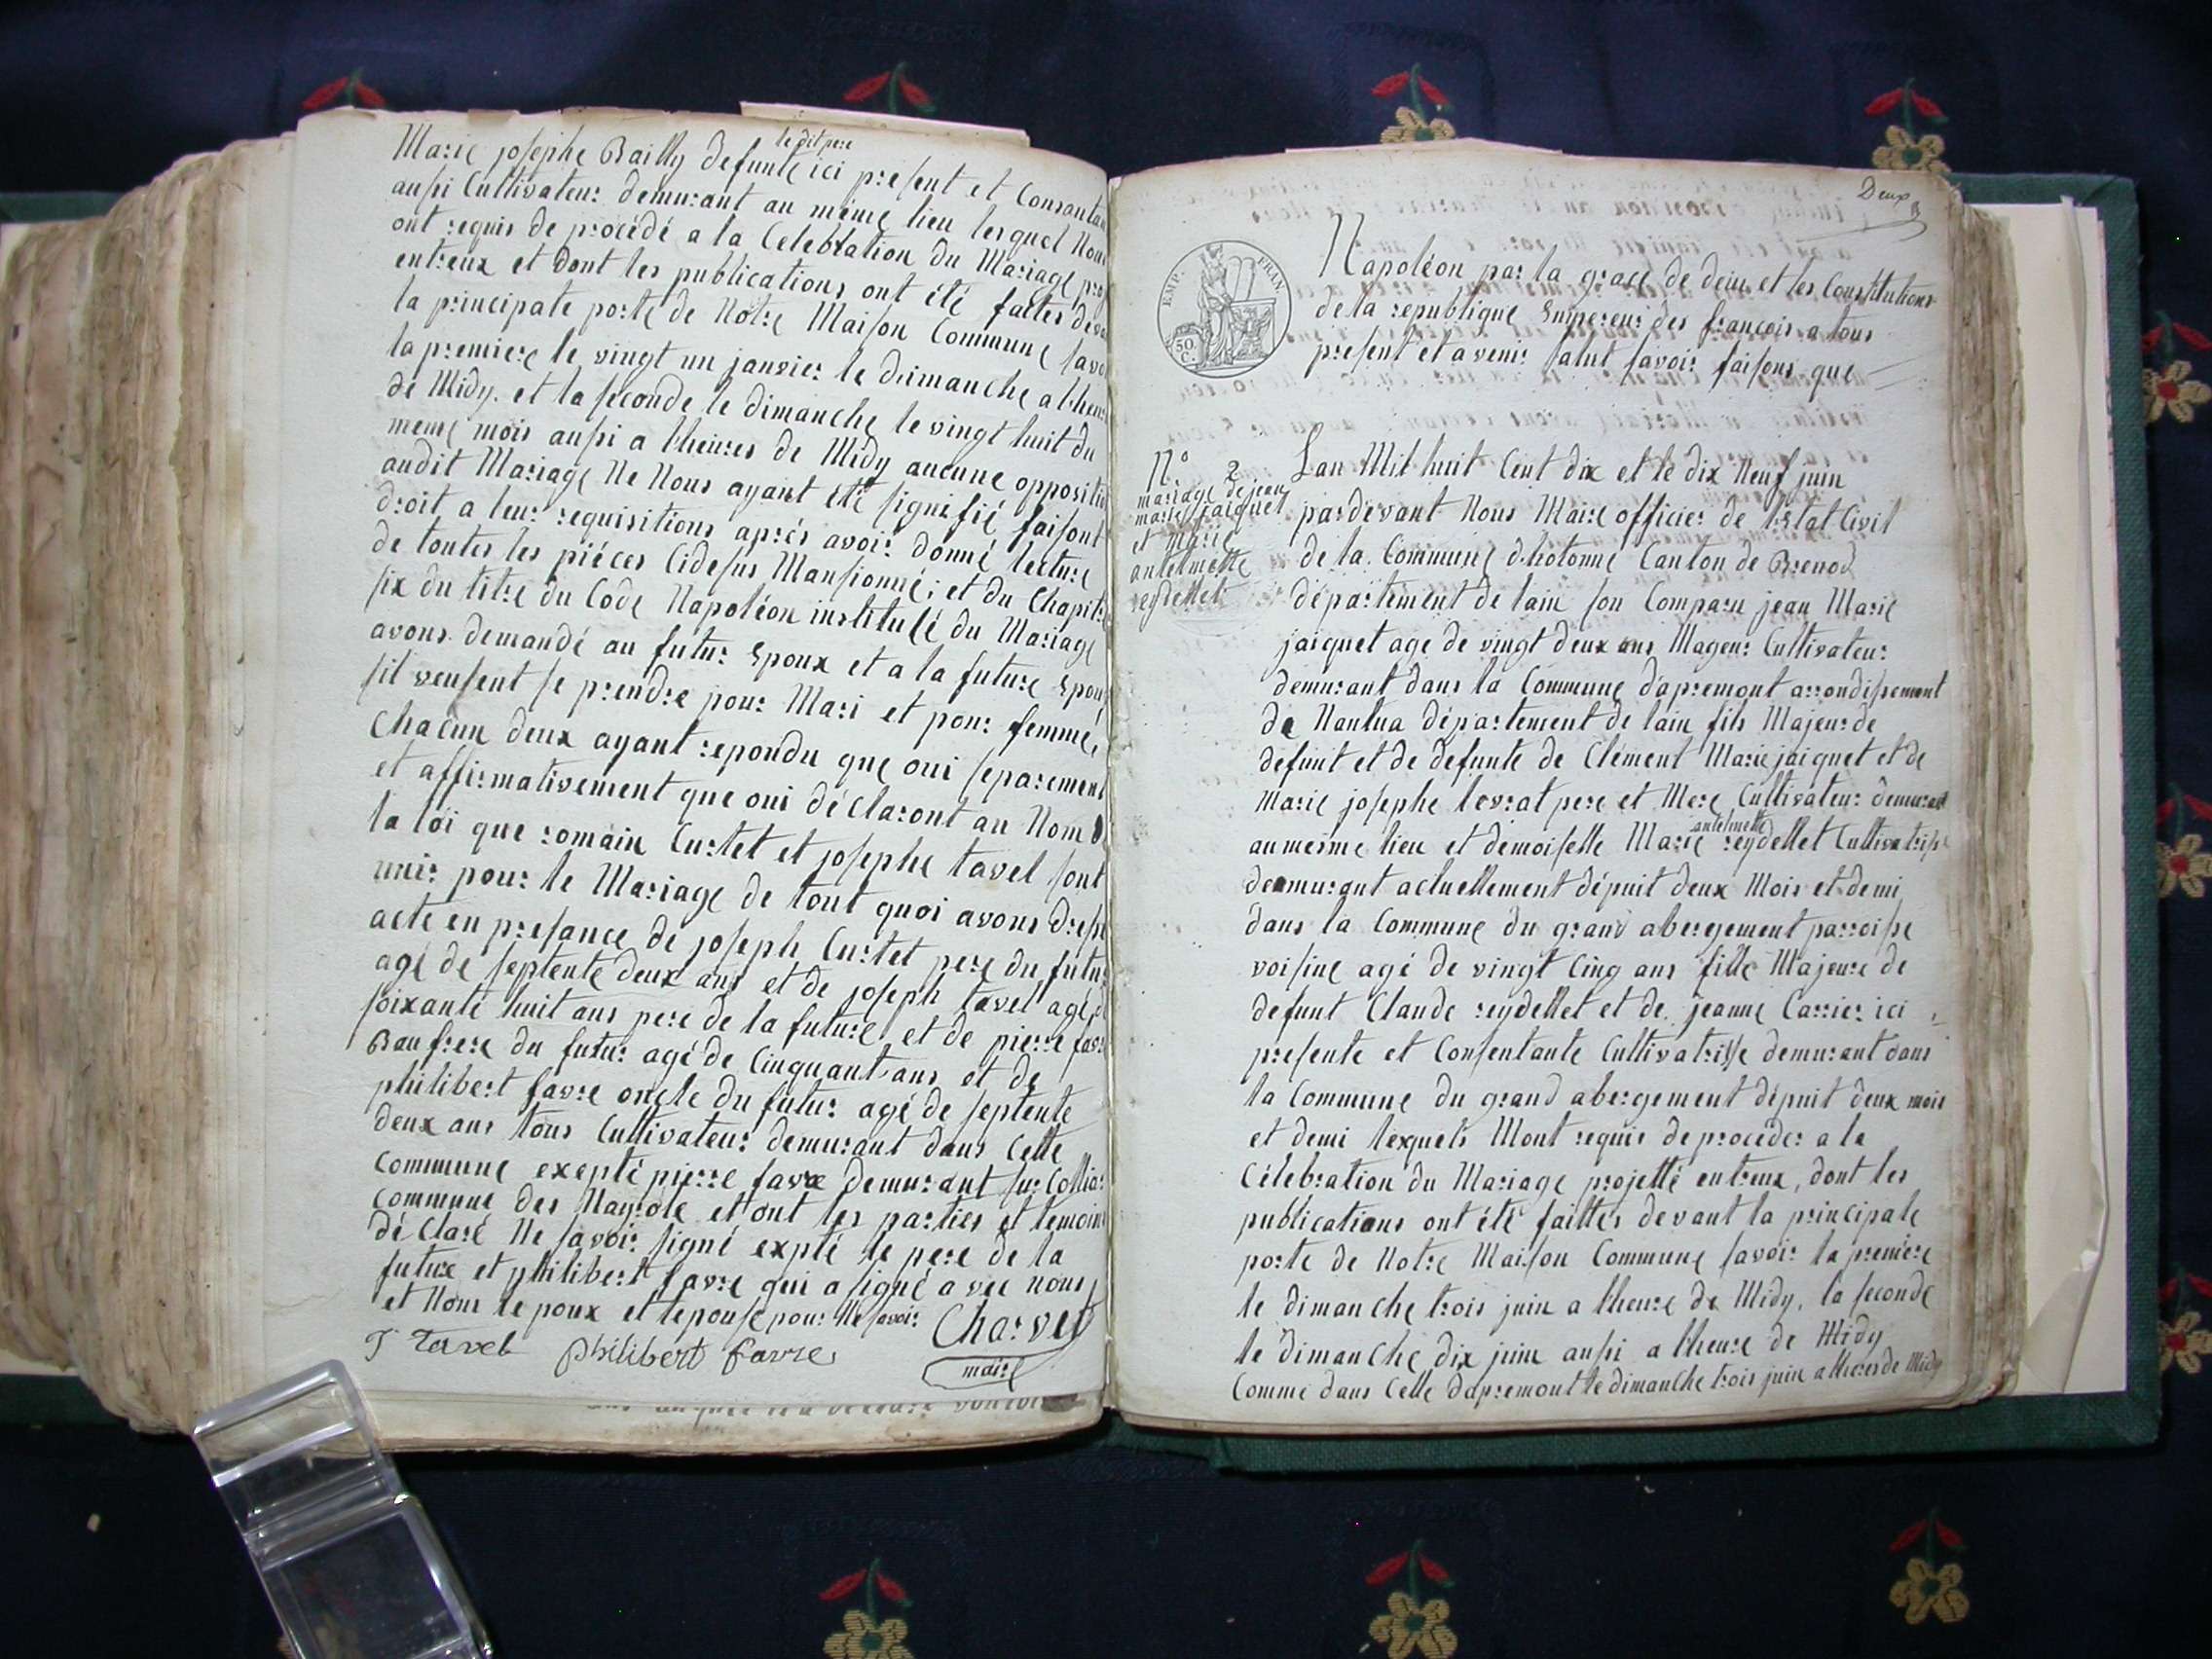 Marie josephe Bailly defunte ici present et Consantan
le dit pere
ausi Cultivateur demurant au méme lieu lesquel Nous
ont requis de procédé a la Celebration du Mariage pro
entreux et Dont les publications ont été faites deva
la principale porte de Notre Maison Commune savo
la premiere le vingt un janvier le dimanche a lheur
de Midy. et la seconde le dimanche le vingt huit du
meme mois ausi a lheures de Midy aucune oppositio
audit Mariage Ne Nous ayant été signifié faisont
droit a leur requisitions aprés avoir donné lecture
de toutes les piéces Cidesus Mansionné; et du Chapitre
six du titre du Code Napoléon institulé du Mariage
avons demandé au futur Epoux et a la future Epous
sil veulent se prendre pour Mari et pour femme,
Chacun deux ayant repondu que oui separement
et affirmativement que oui déClaront au Nom d
la loi que romain Curtet et josephe tavel sont
unir pour le Mariage de tout quoi avons dress
acte en presance de joseph Curtet pere du futur
agé de septente deux ans et de joseph tavel agé d
soixante huit ans pere de la future, et de pierre favr
Baufrere du futur agé de Cinquant ans et de
philibert favre oncle du futur agé de septente
deux ans tous Cultivateur demurant dans Cette
Commune exepté pierre favre demurant sur Colliar
Commune des Nayrole et ont les parties et temoins
déClaré Ne savoir signé expté le pere de la
future et philibert favre qui a signé avec nous
et Nom lepoux et lepouse pour Ne savoir
Charvet
J Tavel Philibert favre
maire
Deux
EMP. FRAN
50.
C.
Napoléon par la grace de deiu et les Constitutions
de la republique Empereur des francois a tous
present et avenir salut savoir faisons que
N° 2
mariage de jean
marie jaiquet
et Marie
antelmette
reydellet
Lan Mil huit Cent dix et le dix Neuf juin
pardevant Nous Maire officier de lEtat Civil
de la Commune dhotonne Canton de Brenod
département de lain son Comparu jean Marie
jaiquet age de vingt deux ans Mageur Cultivateur
demurant dans la Commune dapremont arrondissement
de Nantua département de lain fils Majeur de
defunt et de defunte de Clément Marie jaiquet et de
Marie josephe lovrat pere et Mere Cultivateur demurant
antelmette
au mesme lieu et demoiselle Marie reydellet Cultivatrise
demurant actuellement dépuit deux Mois et demi
dans la Commune du grand abergement parroisse
voisine agé de vingt Cinq ans fille Majeure de
defunt Claude reydellet et de jeanne Carrier ici
presente et Consentante Cultivatrisse demurant dans
la Commune du grand abergement dépuit deux mois
et demi lexquels Mont requis de procéder a la
Célebration du Mariage projetté entreux, dont les
publications ont été faittes devant la principale
porte de Notre Maison Commune savoir la premiere
le dimanche trois juin a lheure de Midy, la seconde
le dimanche dix juin ausi a lheure de Midy
Comme dans Celle dapremont le dimanche trois juin a lheures de Midy